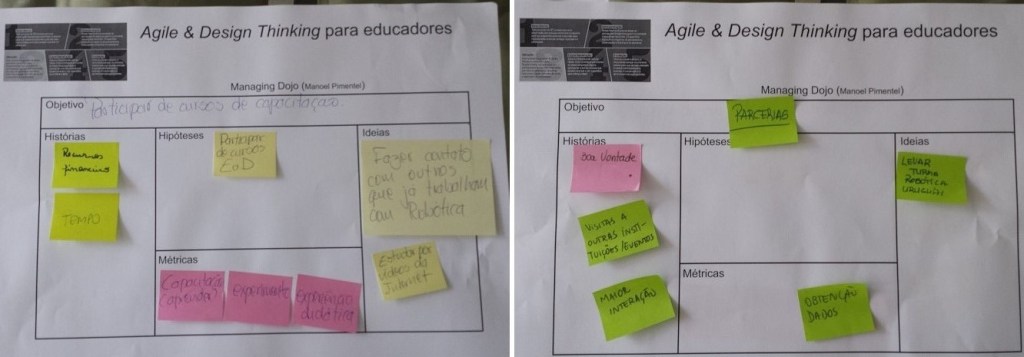 Agile & Design Thinking para educadores
Managing Dojo (Manoel Pimentel)
Objetivo Participar de cursos de capacitação.
Histórias
Recursos
financeiros
TEMPO
Hipóteses
Participar
de cursos
EaD
Ideias
Fazer contato
com outros
que já trabalham
com Robótica
Estudar por
vídeos da
Internet
Métricas
Capacitação
Experimento
Exposição
didática
Agile & Design Thinking para educadores
Managing Dojo (Manoel Pimentel)
Objetivo
PARCERIAS
Histórias
Boa Vontade
VISITAS A
OUTRAS INSTI-
TUIÇÕES/EVENTOS
MAIOR
INTERAÇÃO
Hipóteses
Ideias
LEVAR
TURMA
ROBÓTICA
Métricas
OBTENÇÃO
DADOS